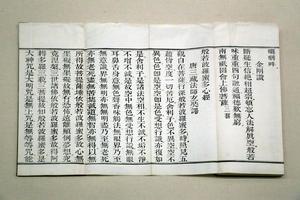 金剛讚
斷疑生信絕相超宗頓忘人法解真空般若
味重重四句融通福德歎無窮
南無祇園會上佛菩薩 三稱
般若波羅蜜多心經
唐三藏法師玄奘譯
觀自在菩薩行深般若波羅蜜多時照見五
蘊皆空度一切苦厄舍利子色不異空空不異
色色即是空空即是色受想行識亦復如
是舍利子是諸法空相不生不滅不垢不淨
不增不減是故空中無色無受想行識無眼
耳鼻舌身意無色聲香味觸法無眼界乃至
無意識界無無明亦無無明盡乃至無老死
亦無老死盡無苦集滅道無智亦無得以無
所得故菩提薩埵依般若波羅蜜多故心無
罣礙無罣礙故無有恐怖遠離顛倒夢想究
竟涅槃三世諸佛依般若波羅蜜多故得阿
耨多羅三藐三菩提故知般若波羅蜜多是
大神咒是大明咒是無上咒是無等等咒能